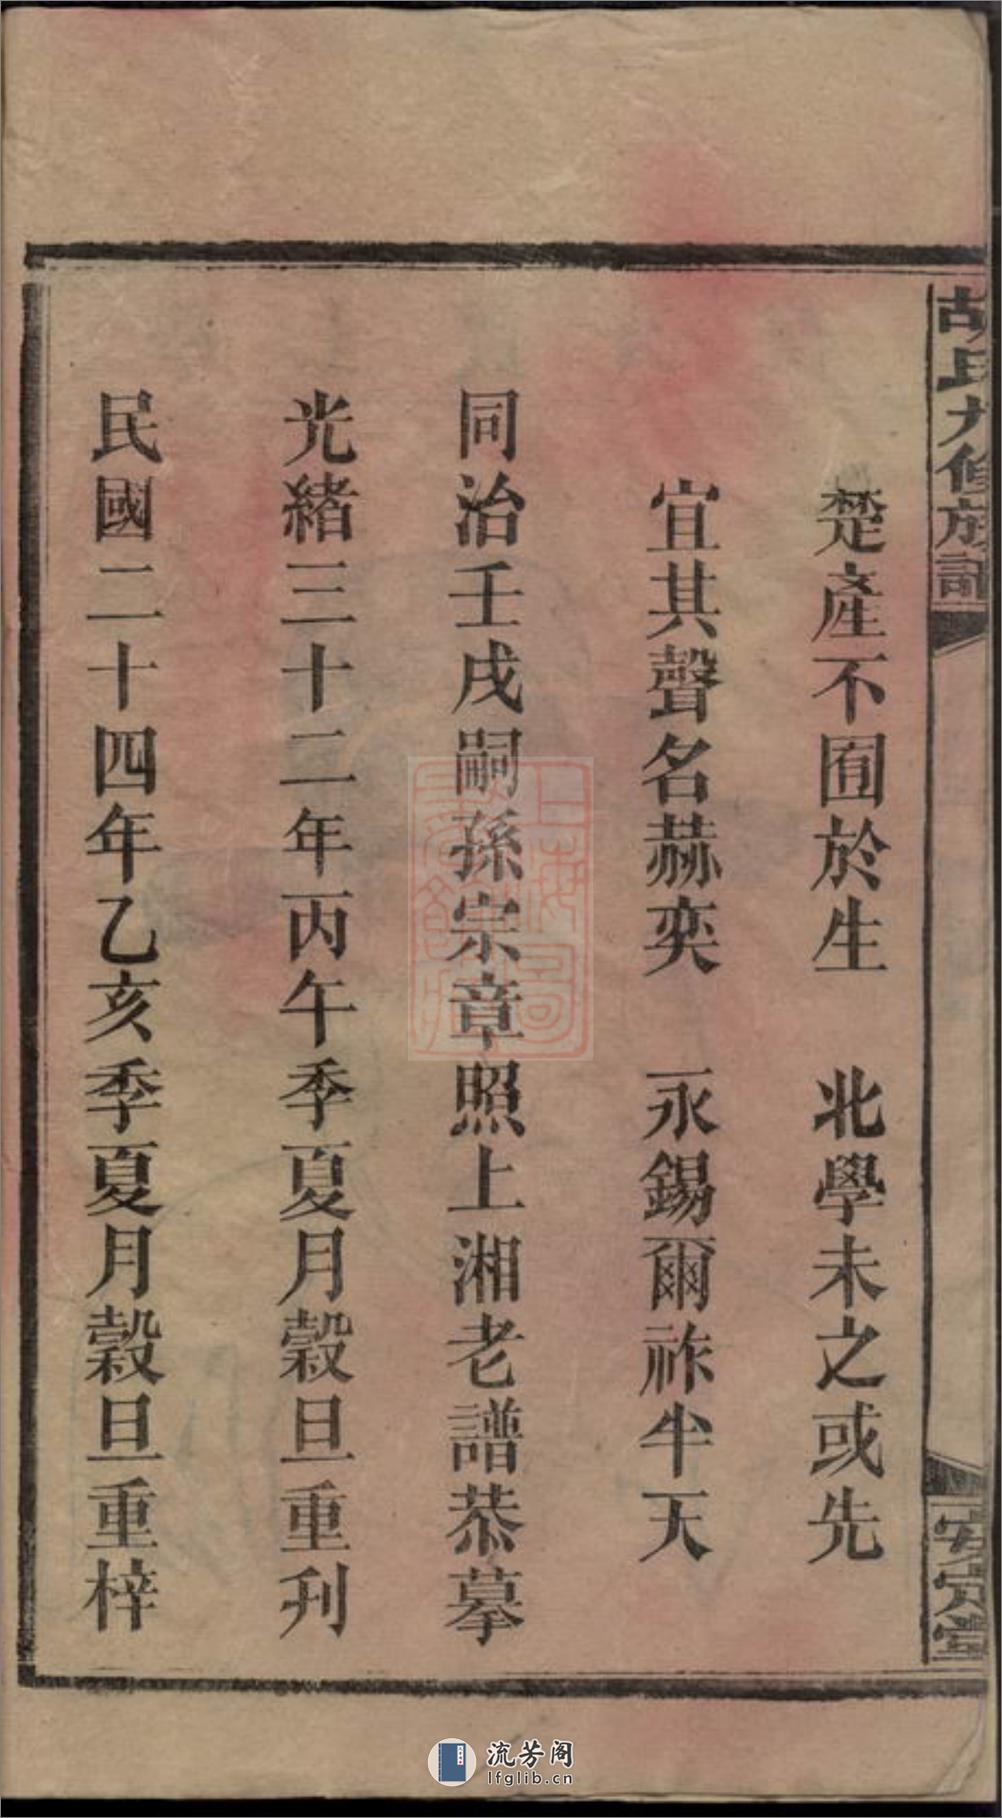 胡氏九修族譜
安定堂
楚產不囿於生　北學未之或先
宜其聲名赫奕　永錫爾祚半天
同治壬戌嗣孫宗章照上湘老譜恭摹
光緒三十二年丙午季夏月穀旦重刋
民國二十四年乙亥季夏月穀旦重梓
上海圖書館藏
流芳阁
lfglib.cn